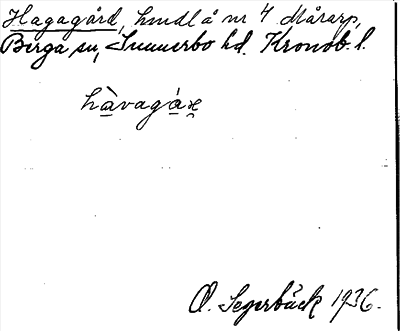 Hagagård, hmdl å nr 4 Mårarp,
Berga sn, Sunnerbo hd. Kronob. l.
hàvagáṛ
O. Segerbäck 1936.